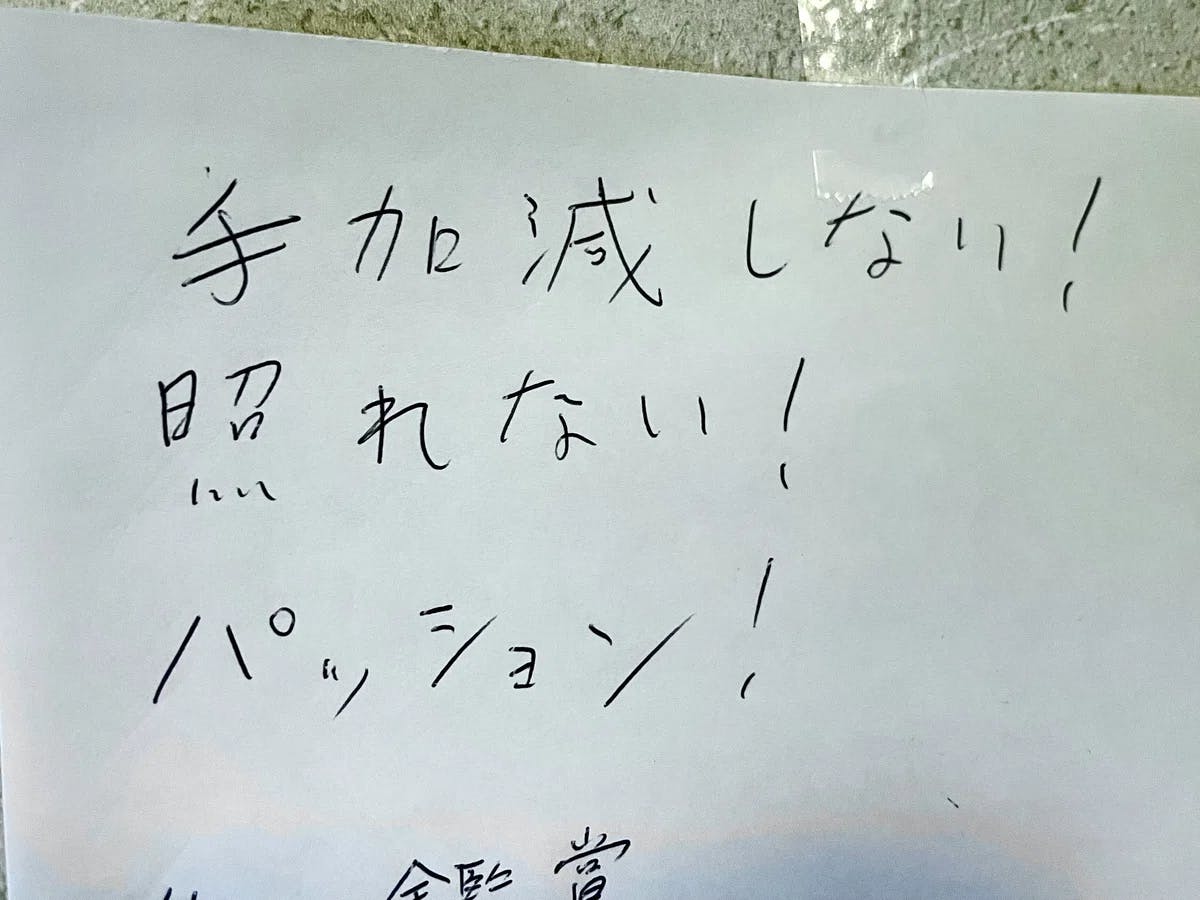 手加減しない!
照れない!
パッション!
鑑賞